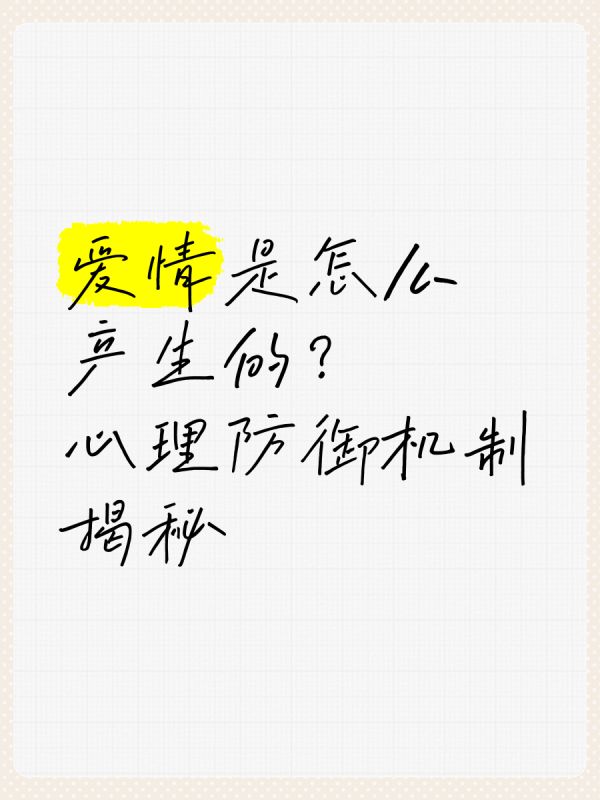 爱情是怎么
产生的？
心理防御机制
揭秘